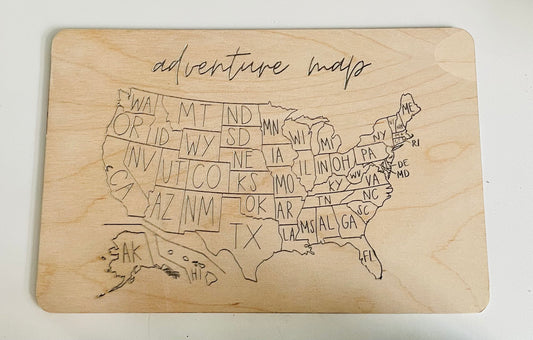 adventure map
WA MT ND MN ME
OR ID WY SD WI MI NY
NV UT CO NE IA IL IN OH PA RI
CA KS MO KY WV VA DE
MD
AZ NM OK AR TN NC
TX LA MS AL GA SC
AK HI FL